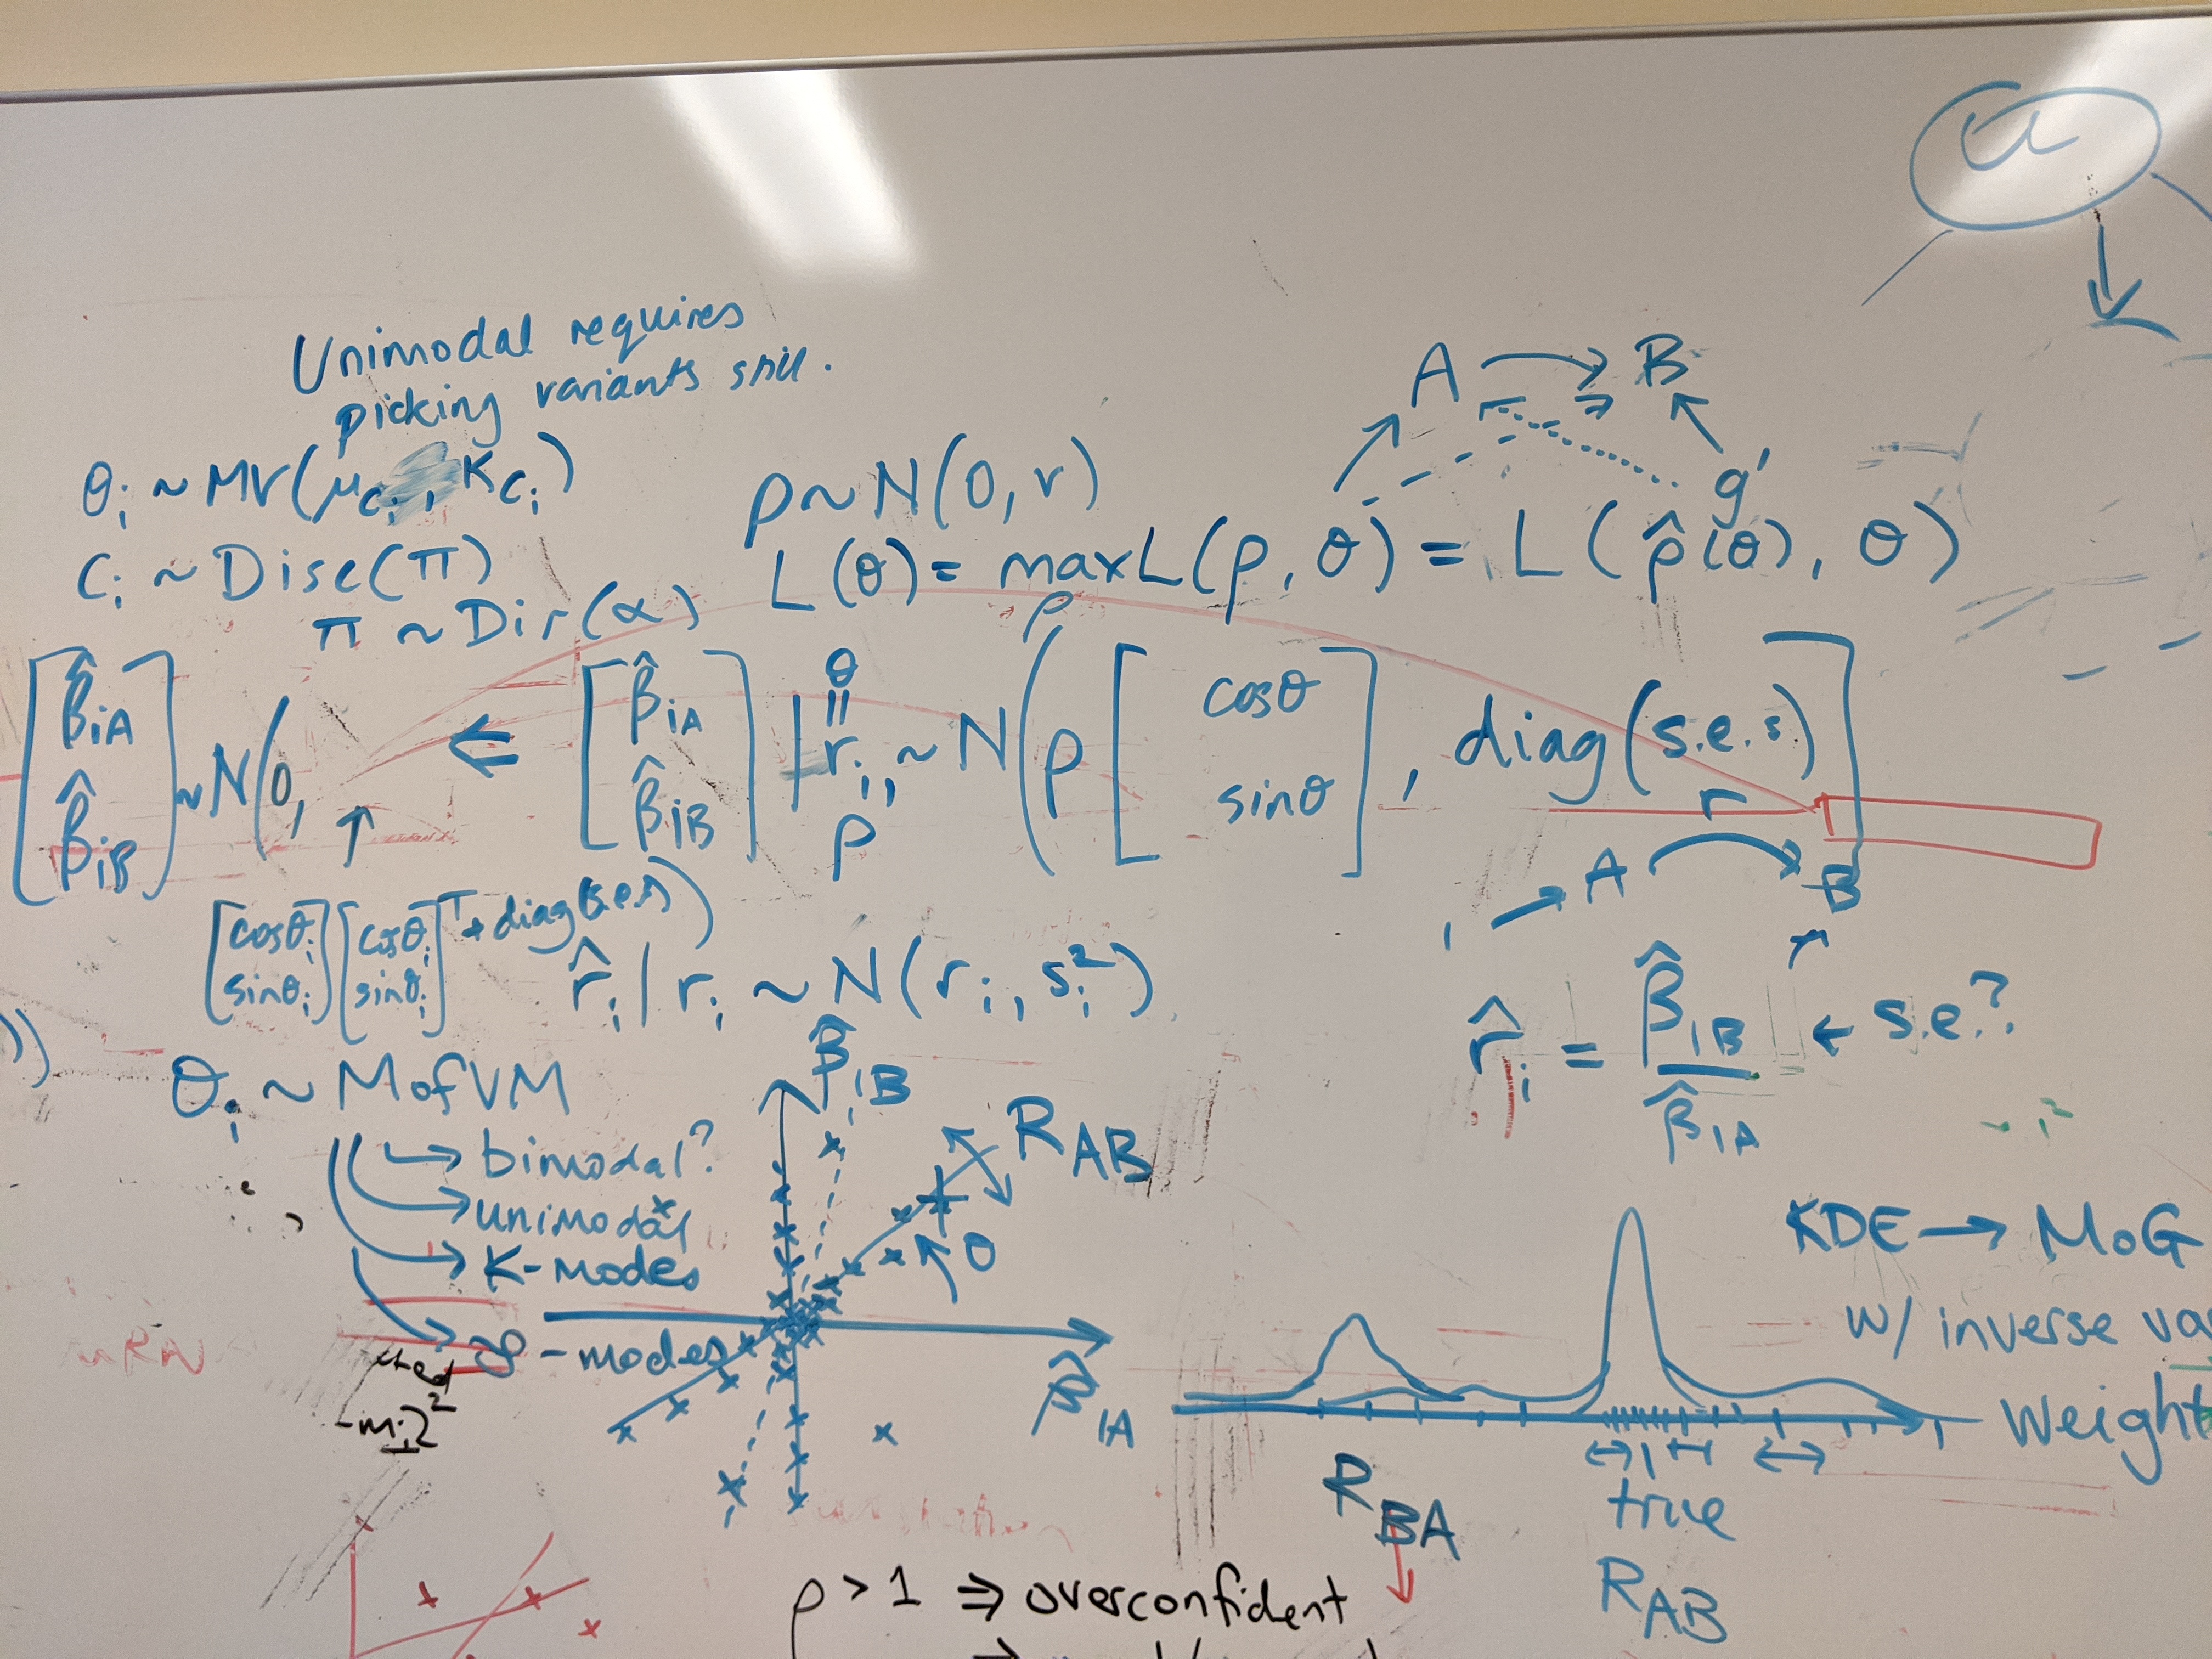 u
Unimodal requires
picking variants still.
A → B
g'
θ_i ~ MV(μ_{c_i}, K_{c_i})
C_i ~ Disc(π)
π ~ Dir(α)
ρ ~ N(0, r)
L(θ) = max_ρ L(ρ, θ) = L(ρ̂(θ), θ)
[β̂_{iA} β̂_{iB}] ~ N(0,
↑
[cosθ_i sinθ_i][cosθ_i sinθ_i]^T + diag(s.e.s))
⇐ [β̂_{iA} β̂_{iB}] | θ = r_i, ρ ~ N(ρ [cosθ sinθ], diag(s.e.s)]
r
→ A → B
r̂_i | r_i ~ N(r_i, s_i^2)
r̂_i = β̂_{iB} / β̂_{iA} ← s.e.?
θ_i ~ MofVM
→ bimodal?
→ unimodal
→ K-modes
→ ∞-modes
β̂_{iB}
R_{AB}
θ
β̂_{iA}
KDE → MoG
w/ inverse va
weight
R_{BA}
true
R_{AB}
-m_i)^2
ρ > 1 ⇒ overconfident